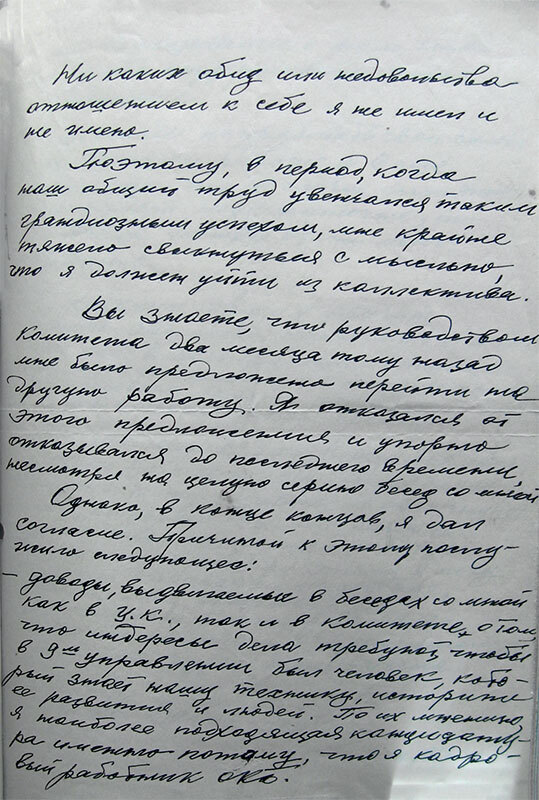 Ни каких обид или недовольства
отношением к себе я не имел и
не имею.
Поэтому, в период, когда
наш общий труд увенчался таким
грандиозным успехом, мне крайне
тяжело свыкнуться с мыслью,
что я должен уйти из коллектива.
Вы знаете, что руководством
комитета два месяца тому назад
мне было предложено перейти на
другую работу. Я отказался от
этого предложения и упорно
отказывался до последнего времени,
несмотря на целую серию бесед со мной
Однако, в конце концов, я дал
согласие. Причиной к этому послу-
жило следующее:
- доводы, выдвигаемые в беседах со мной
как в Ц.К., так и в Комитете, о том,
что интересы дела требуют, чтобы
в 9ом управлении был человек, кото-
рый знает нашу технику, историю
ее развития и людей. По их мнению
я наиболее подходящая кандидату-
ра именно потому, что я кадро-
вый работник ОКБ.